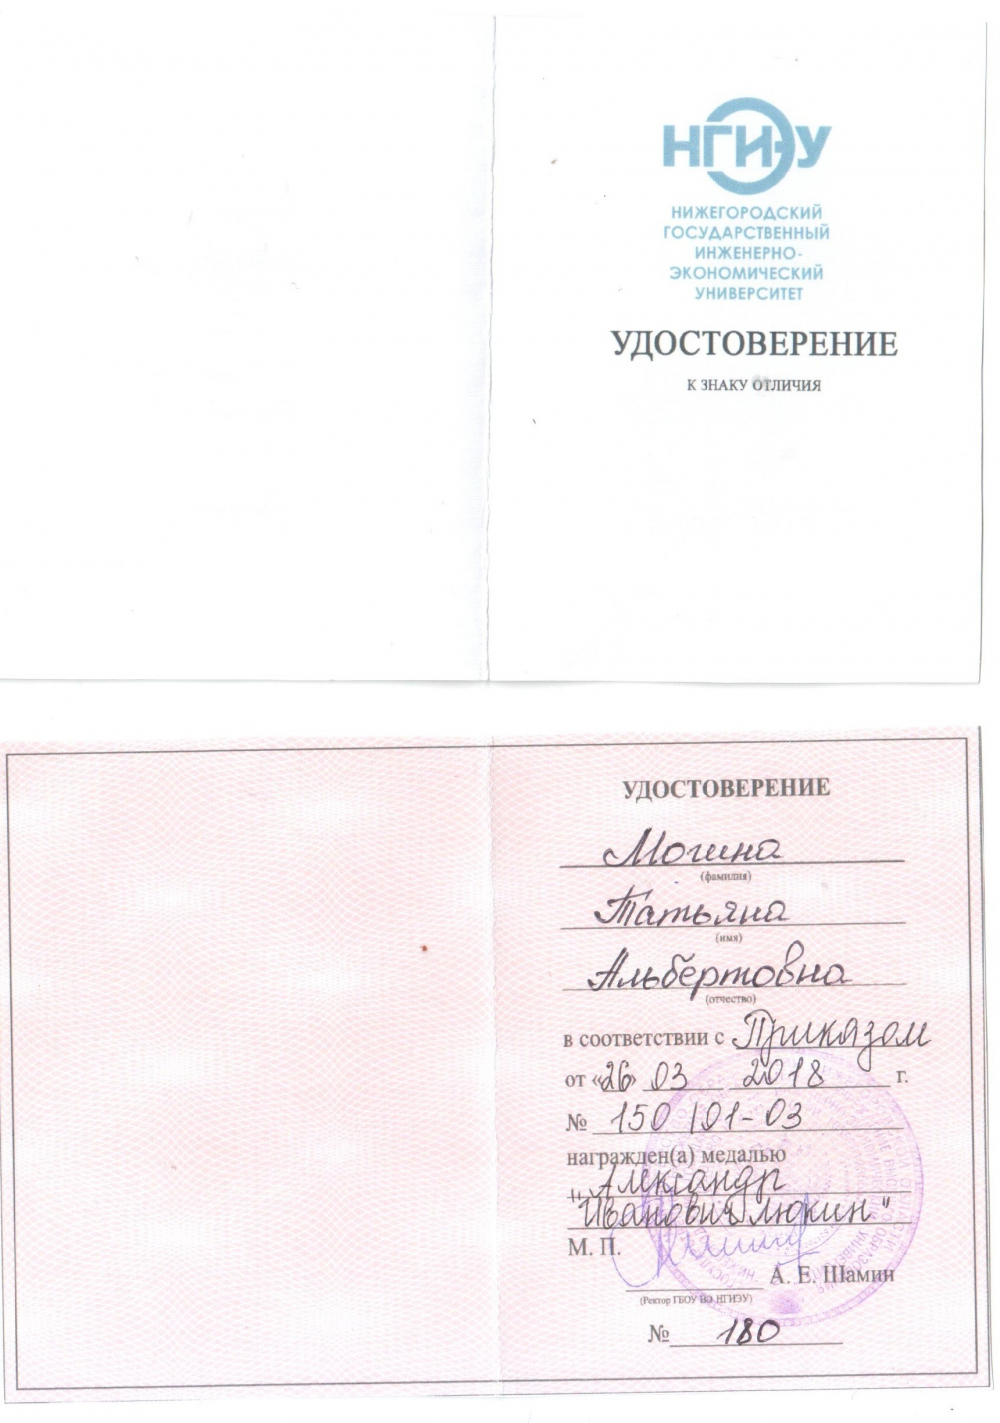 НГИЭУ
НИЖЕГОРОДСКИЙ
ГОСУДАРСТВЕННЫЙ
ИНЖЕНЕРНО-
ЭКОНОМИЧЕСКИЙ
УНИВЕРСИТЕТ
УДОСТОВЕРЕНИЕ
К ЗНАКУ ОТЛИЧИЯ
УДОСТОВЕРЕНИЕ
Могина
(фамилия)
Татьяна
(имя)
Альбертовна
(отчество)
в соответствии с Приказом
от «26» 03 2018 г.
№ 150/01-03
награжден(а) медалью
"Александр
Иванович Люкин"
М. П.
А. Е. Шамин
(Ректор ГБОУ ВО НГИЭУ)
№ 180